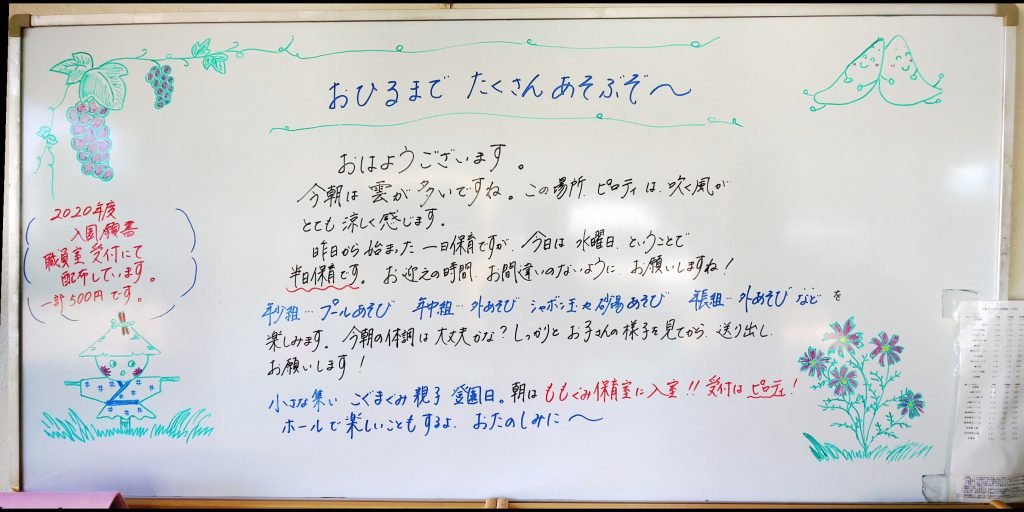 おひるまで たくさんあそぶぞ〜
おはようございます。
今朝は雲が多いですね。この場所、ピロティは、吹く風が
とても涼しく感じます。
昨日から始まった一日保育ですが、今日は水曜日、ということで
半日保育です。お迎えの時間、お間違いのないように、お願いしますね!
年少組…プールあそび 年中組…外あそび シャボン玉や砂場あそび 年長組…外あそびなど を
楽しみます。今朝の体調は大丈夫かな?しっかりとお子さんの様子を見てから、送り出し、
お願いします!
小さな集い こぐまぐみ親子登園日。朝はももぐみ保育室に入室!!受付はピロティ!
ホールで楽しいこともするよ。おたのしみに〜
2020年度
入園願書
職員室受付にて
配布しています。
一部500円です。